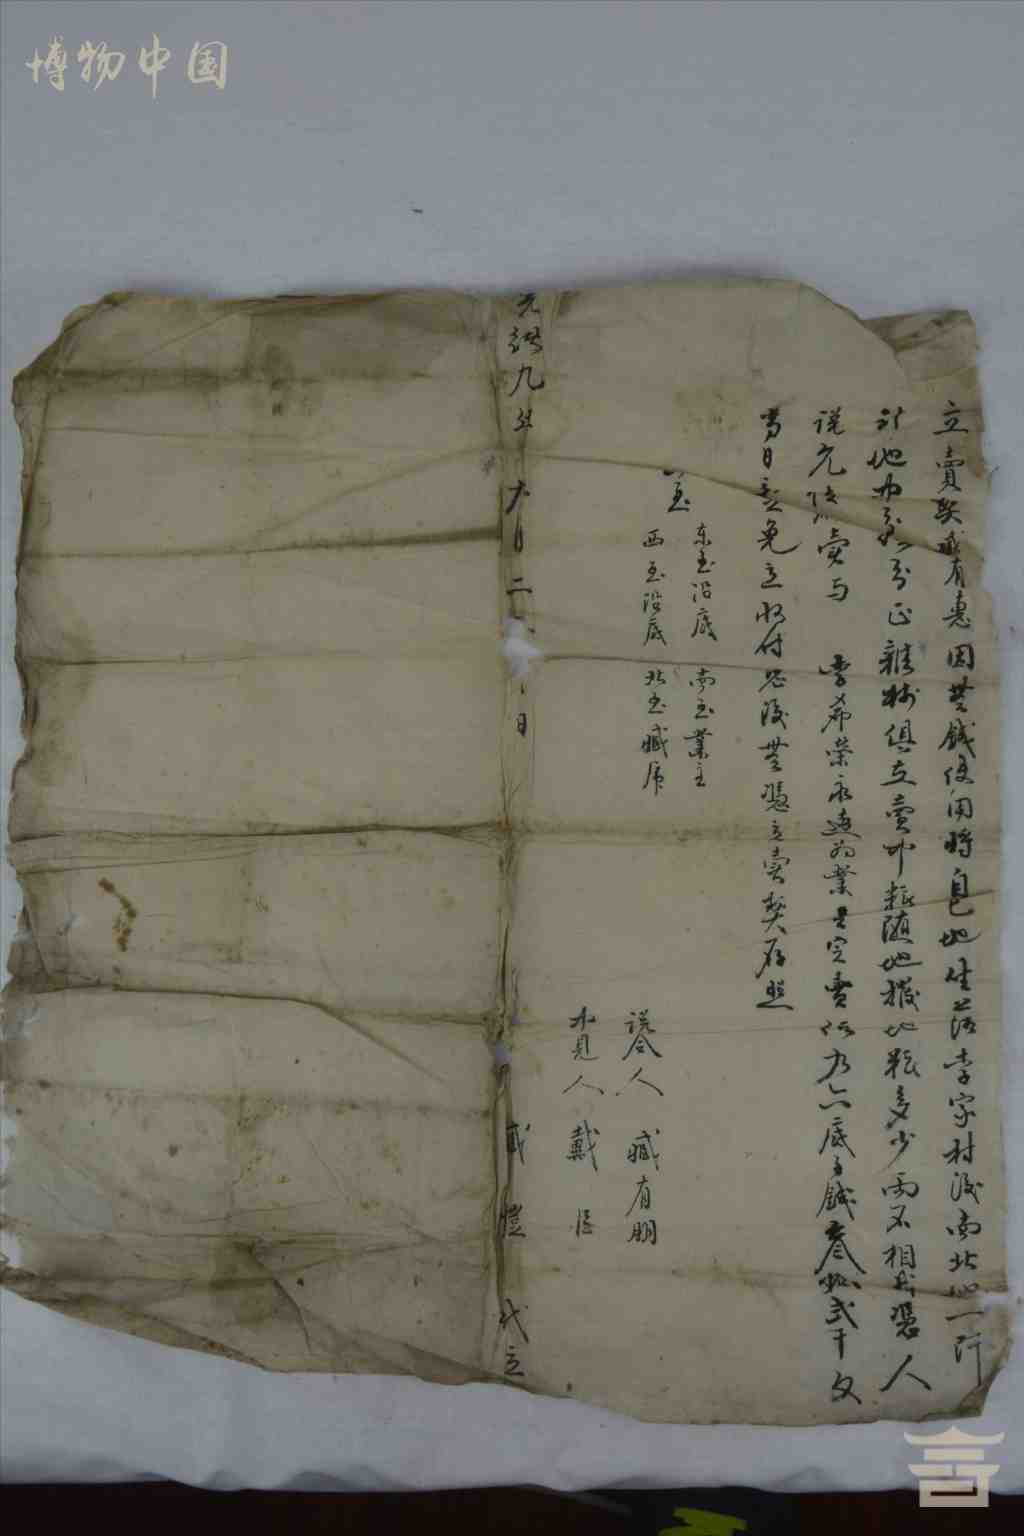 博物中国
立賣契臧有惠因無錢使用將自己地坐落李家村後南北地一阡
計地分正雜樹俱在賣中粮隨地撥地粮多少兩不相找憑人
說允情賣与 李希荣永遠为業言定賣價九六底錢叁拾弍千文
當日交免立收付恐後無憑立賣契存照
至
東至沿底 南至業主
西至沿底 北至臧
說合人 臧有朋
知見人 戴
光緒九年六月二十日
臧 代立